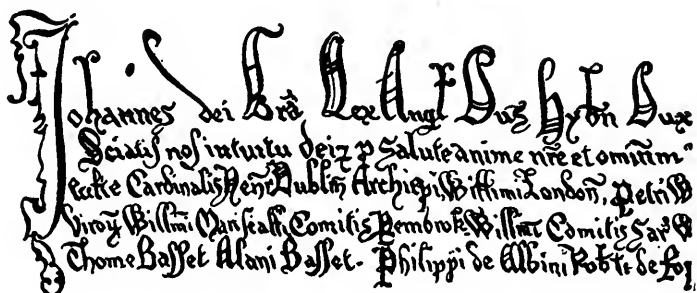 Johannes dei Grā Rex Angł Dus̄ Hybn̄ Dux
Sciatis nos intuitu dei ⁊ p Salute anime nr̄e et omnium
Cardinalis Henr̄ Dublin̄ Archiep̄i, Willimi London̄, Petri W
Viroꝝ Willm̄i Marescałł, Comitis Pembrok Willm̄i Comitis Sar̄ W
Thome Basset Alani Basset. Philippi de Albini Robti de